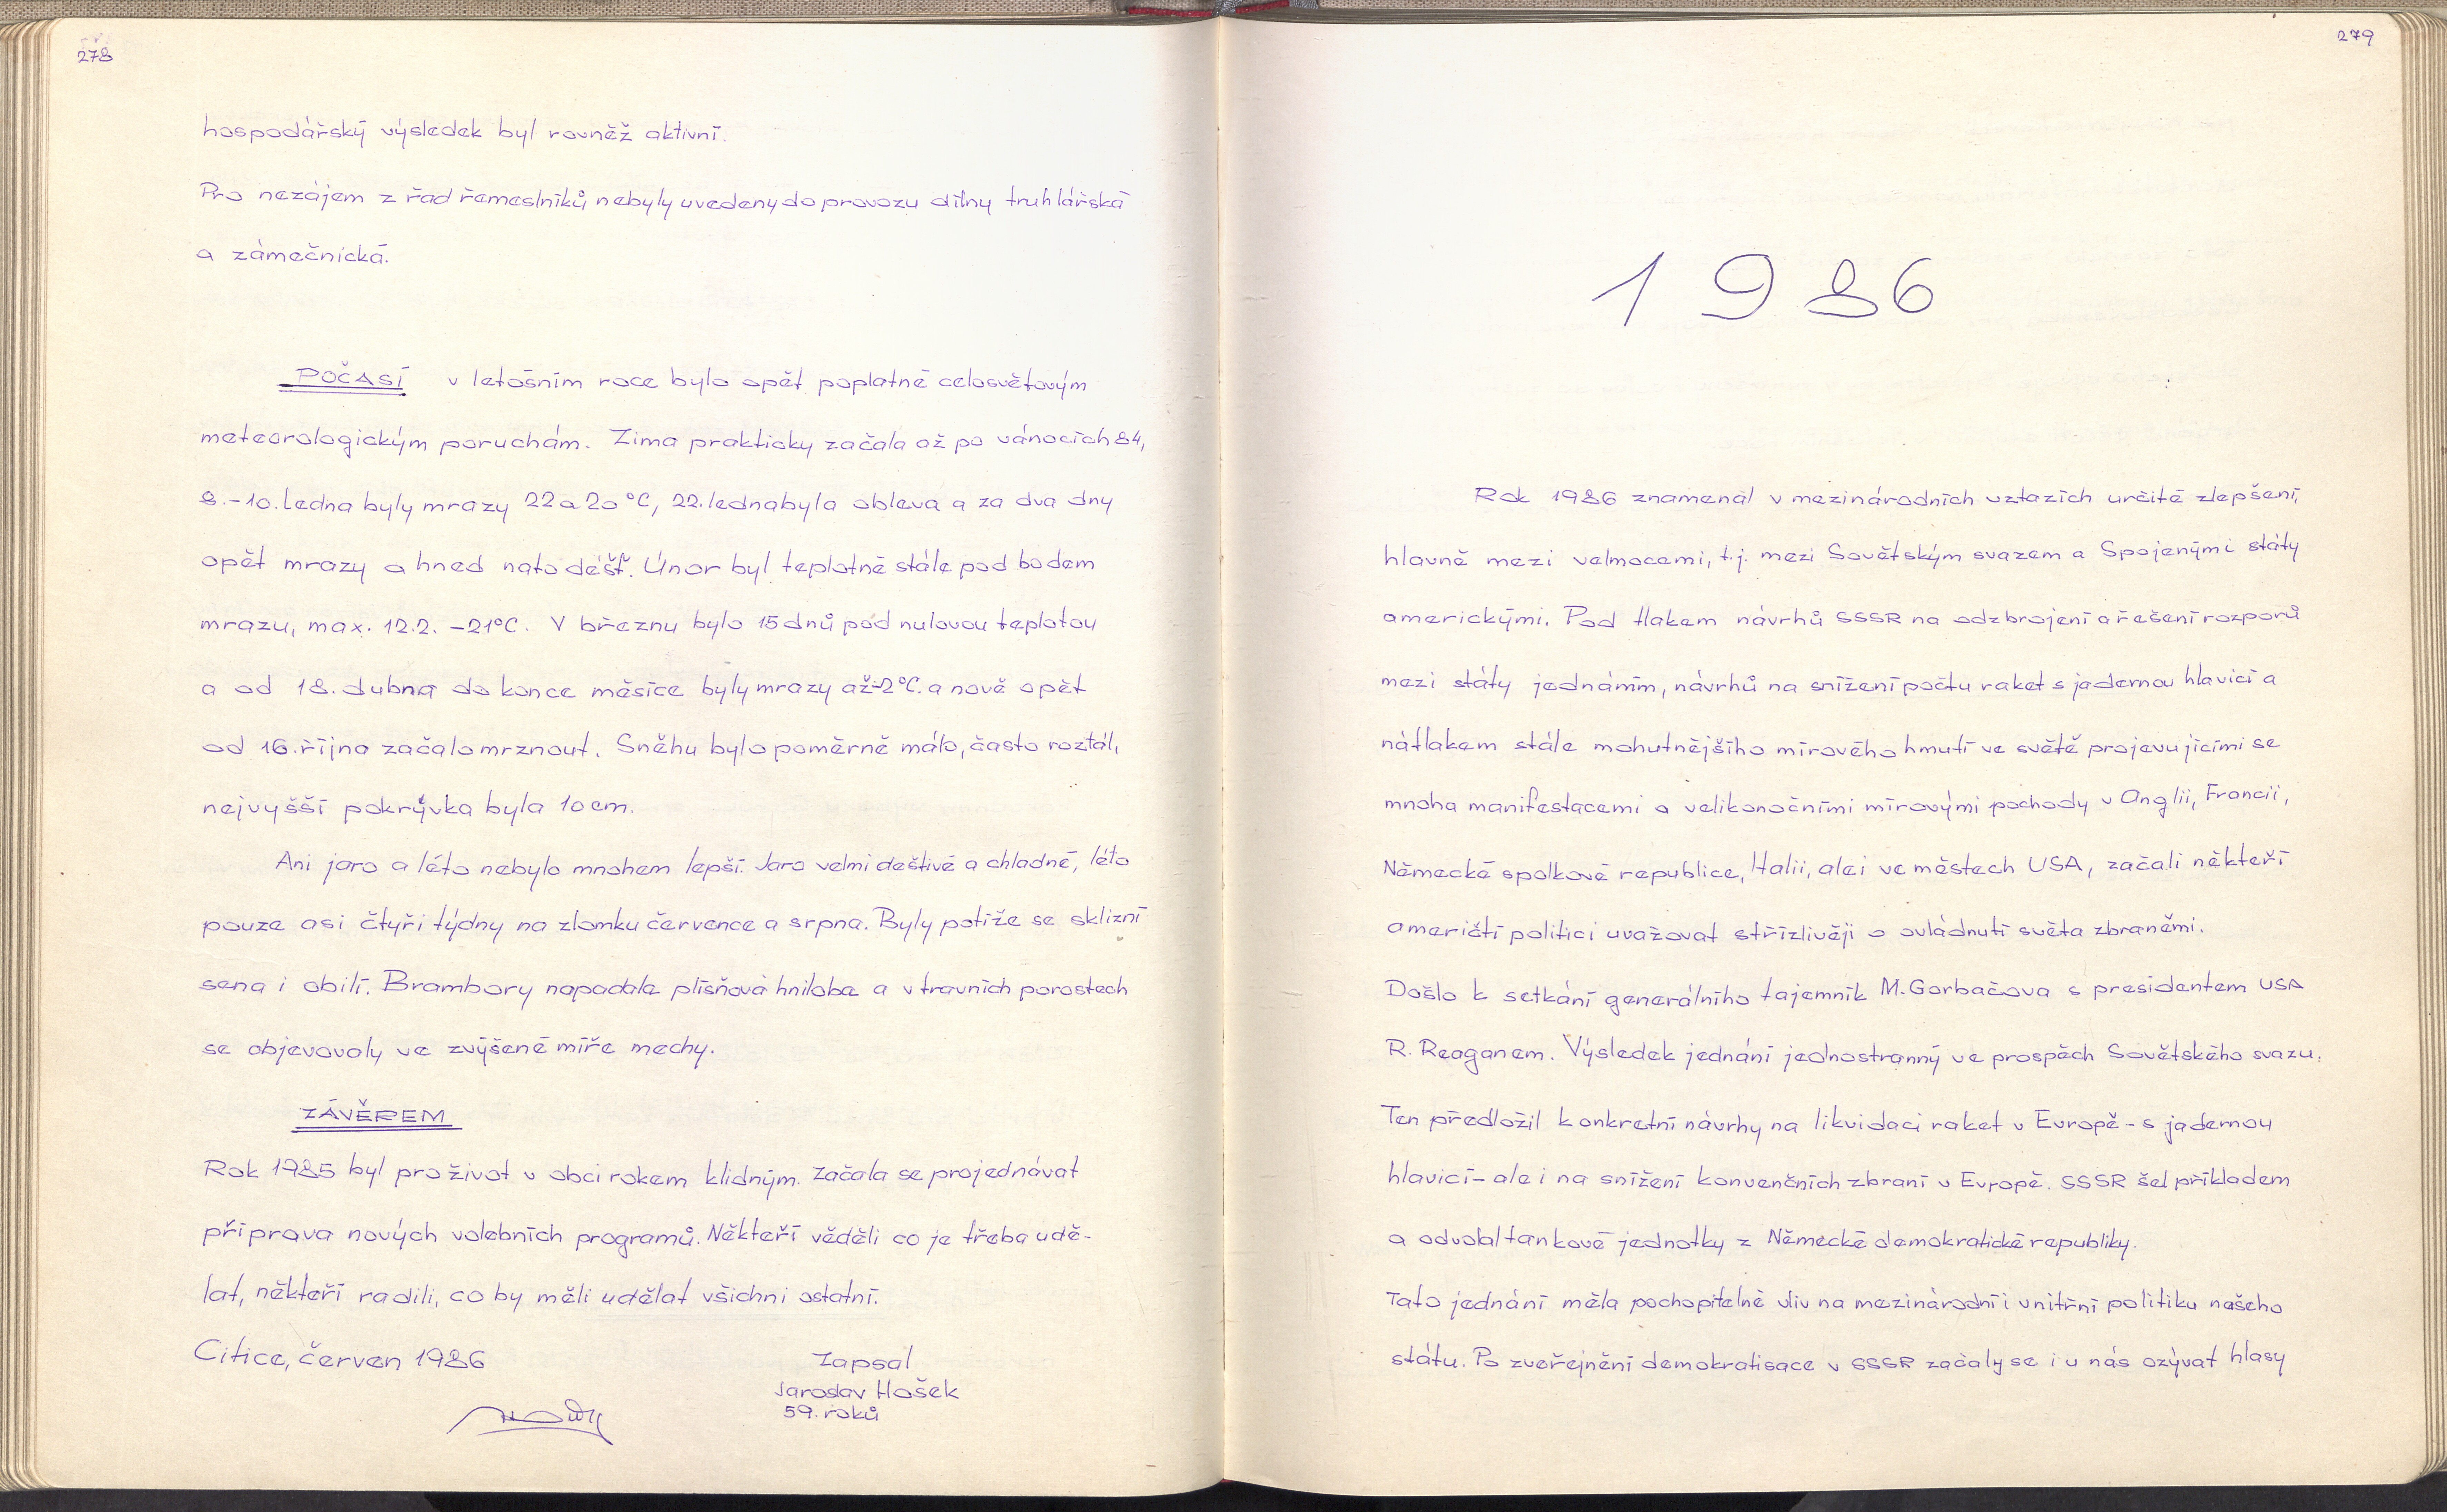 278
hospodářský výsledek byl rovněž aktivní.
Pro nezájem z řad řemeslníků nebyly uvedeny do provozu dílny truhlářská
a zámečnická.
POČASÍ v letošním roce bylo opět poplatné celosvětovým
meteorologickým poruchám. Zima prakticky začala až po vánocích 84,
8.-10. ledna byly mrazy 22 a 20 °C, 22. ledna byla obleva a za dva dny
opět mrazy a hned nato déšť. Únor byl teplotně stále pod bodem
mrazu, max. 12.2. -21°C. V březnu bylo 15 dnů pod nulovou teplotou
a od 18. dubna do konce měsíce byly mrazy až -2°C. a nově opět
od 16. října začalo mrznout. Sněhu bylo poměrně málo, často roztál,
nejvyšší pokrývka byla 10 cm.
Ani jaro a léto nebylo mnohem lepší. Jaro velmi deštivé a chladné, léto
pouze asi čtyři týdny na zlomku července a srpna. Byly potíže se sklizní
sena i obilí. Brambory napadala plísňová hniloba a v travních porostech
se objevovaly ve zvýšené míře mechy.
ZÁVĚREM
Rok 1985 byl pro život v obci rokem klidným. Začala se projednávat
příprava nových volebních programů. Někteří věděli co je třeba udě-
lat, někteří radili, co by měli udělat všichni ostatní.
Citice, červen 1986
Zapsal
Jaroslav Hošek
59. roků
279
1986
Rok 1986 znamenal v mezinárodních vztazích určité zlepšení,
hlavně mezi velmocemi, t.j. mezi Sovětským svazem a Spojenými státy
americkými. Pod tlakem návrhů SSSR na odzbrojení a řešení rozporů
mezi státy jednáním, návrhů na snížení počtu raket s jadernou hlavicí a
nátlakem stále mohutnějšího mírového hmutí ve světě projevujícími se
mnoha manifestacemi a velikonočními mírovými pochody v Anglii, Francii,
Německé spolkové republice, Italii, ale i ve městech USA, začali někteří
američtí politici uvažovat střízlivěji o ovládnutí světa zbraněmi.
Došlo k setkání generálního tajemník M. Gorbačova s presidentem USA
R. Reaganem. Výsledek jednání jednostranný ve prospěch Sovětského svazu.
Ten předložil konkretní návrhy na likvidaci raket v Evropě - s jadernou
hlavicí - ale i na snížení konvenčních zbraní v Evropě. SSSR šel příkladem
a odvolal tankové jednotky z Německé demokratické republiky.
Tato jednání měla pochopitelně vliv na mezinárodní i vnitřní politiku našeho
státu. Po zveřejnění demokratisace v SSSR začaly se i u nás ozývat hlasy